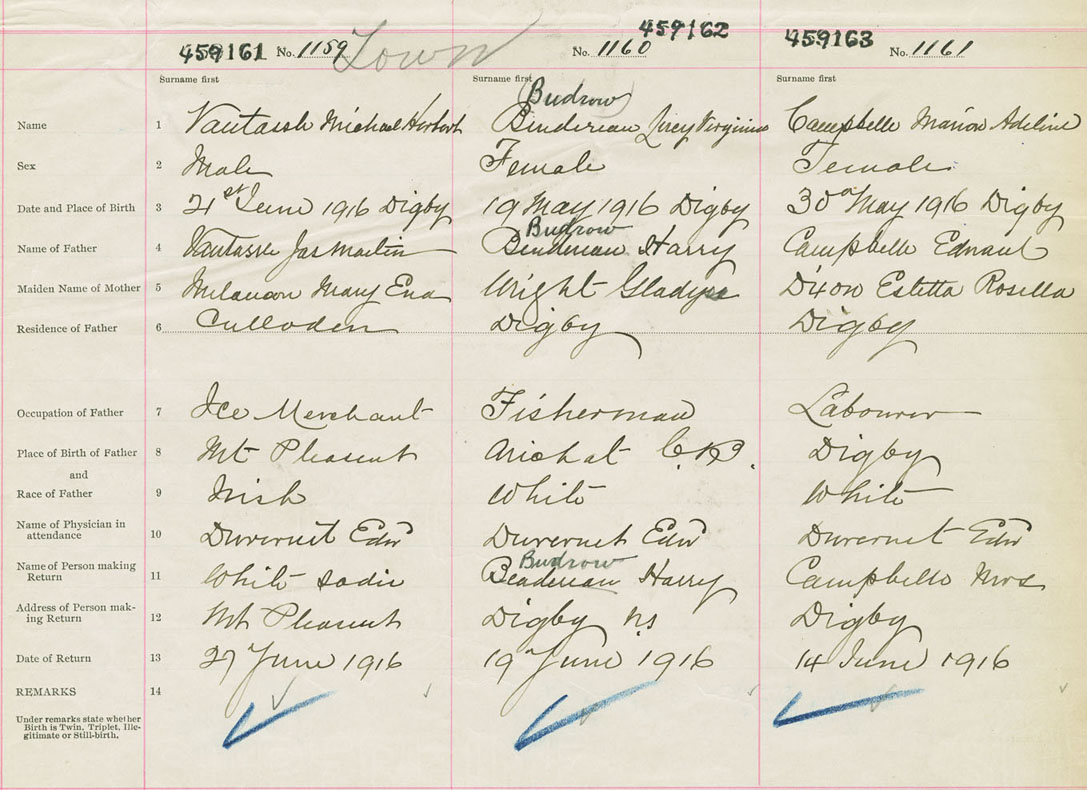 459161 No. 1159 Town No. 1160 459162 459163 No. 1161
Surname first Surname first Surname first
(Budrow)
Name 1 Michael Herbert Virginia Campbelle Marion Adeline
Sex 2 Male Female Female
Date and Place of Birth 3 21st June 1916 Digby 19 May 1916 Digby 30 May 1916 Digby
Budrow
Name of Father 4 Jas Martin Harry Campbelle
Maiden Name of Mother 5 Mary Wright Gladys Dixon Estetta Rosella
Residence of Father 6 Culloden Digby Digby
Occupation of Father 7 Ice Merchant Fisherman Labourer
Place of Birth of Father 8 Mt Pleasent Arichat C.B. Digby
and
Race of Father 9 Irish White White
Name of Physician in
attendance 10 Duvernet Edw Duvernet Edw Duvernet Edw
Budrow
Name of Person making
Return 11 White Sadie Harry Campbelle Mrs
Address of Person mak-
ing Return 12 Mt Pleasent Digby NS Digby
Date of Return 13 27 June 1916 19 June 1916 14 June 1916
REMARKS 14
Under remarks state whether
Birth is Twin, Triplet, Ille-
gitimate or Still-birth.